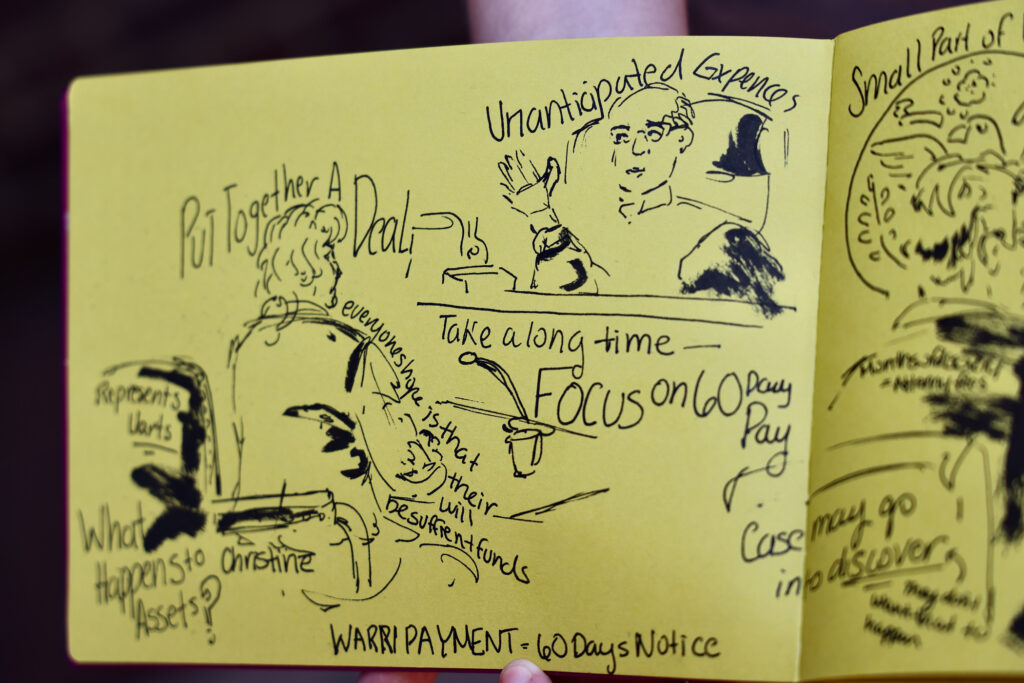 Unanticipated Expences
Put Together A
Deal,
Take a long time —
everyones hope is that
their
will
be suffient funds
Focus on 60 Day
Pay
Represents
Warts
What
Happens to
Assets?
Christine
WARRI PAYMENT = 60 Days Notice
Small Part of
Case may go
into discover
may don't
want that to
happen